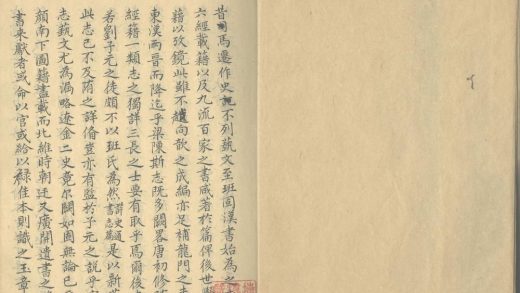 昔司馬遷作史記不列蓺文至班固漢書始為之
六經載籍以及九流百家之書咸著於篇俾後世
藉以攷鏡此雖不越向歆之成編亦足補龍門之
東漢兩晉而降迄乎梁陳斯志既多闕畧唐初修
經籍一類志之獨詳三長之士要有取乎爾後
若劉子元之徒頗不以班氏為然詳史通書志篇是以新
此志已不及之詳備豈亦有監於子元之說乎
志蓺文尤為漏略遼金二史竟尒闕如固無論已
顔南下圖籍盡載而北維時朝廷又廣開遺書之
書来獻者或命以官或給以祿佳本則識之玉章